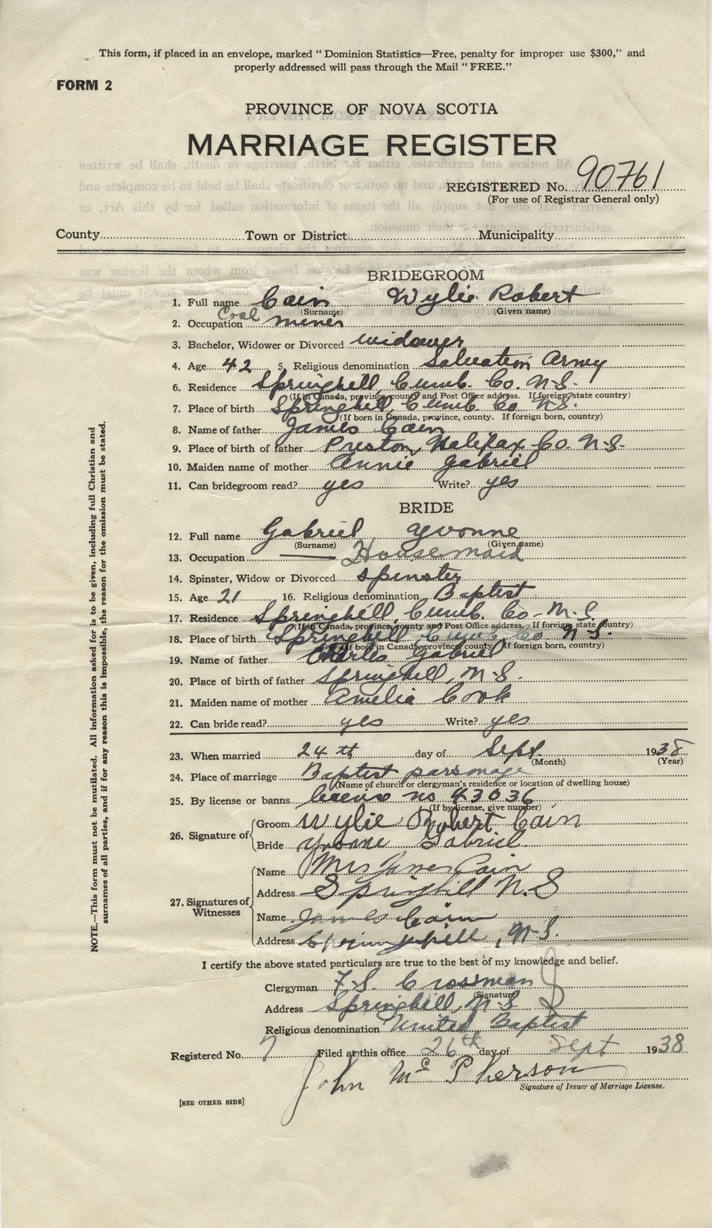 This form, if placed in an envelope, marked "Dominion Statistics—Free, penalty for improper use $300," and
properly addressed will pass through the Mail "FREE."
FORM 2
PROVINCE OF NOVA SCOTIA
MARRIAGE REGISTER
REGISTERED No. 90761
(For use of Registrar General only)
County Town or District Municipality
BRIDEGROOM
1. Full name Cain Wylie Robert
(Surname) (Given name)
2. Occupation Coal miner
3. Bachelor, Widower or Divorced widower
4. Age 42 5. Religious denomination Salvation Army
6. Residence Springhill, Cumb. Co. N-S.
(If in Canada, province, county and Post Office address. If foreign, state country)
7. Place of birth Springhill, Cumb. Co N-S.
(If born in Canada, province, county. If foreign born, country)
8. Name of father James Cain
9. Place of birth of father Preston, Halifax Co. N-S.
10. Maiden name of mother Annie Gabriel
11. Can bridegroom read? yes Write? yes
BRIDE
12. Full name Gabriel Yvonne
(Surname) (Given name)
13. Occupation Housemaid
14. Spinster, Widow or Divorced spinster
15. Age 21 16. Religious denomination Baptist
17. Residence Springhill, Cumb. Co-N-S.
(If in Canada, province, county and Post Office address. If foreign, state country)
18. Place of birth Springhill Cumb Co N-S.
(If born in Canada, province, county. If foreign born, country)
19. Name of father Charles Gabriel
20. Place of birth of father Springhill, N-S.
21. Maiden name of mother Amelia Cook
22. Can bride read? yes Write? yes
23. When married 24th day of Sept. 1938
(Month) (Year)
24. Place of marriage Baptist parsonage
(Name of church or clergyman's residence or location of dwelling house)
25. By license or banns license no 43636
(If by license, give number)
26. Signature of
Groom Wylie Robert Cain
Bride Yvonne Gabriel
27. Signatures of Witnesses
Name Mrs James Cain
Address Springhill N.S
Name James Cain
Address Springhill, N-S.
I certify the above stated particulars are true to the best of my knowledge and belief.
Clergyman F.S. Crossman
(Signature)
Address Springhill, N-S
Religious denomination United Baptist
Registered No. 7 Filed at this office 26th day of Sept 1938
John McPherson
Signature of Issuer of Marriage License.
[SEE OTHER SIDE]
NOTE.—This form must not be mutilated. All information asked for is to be given, including full Christian and
surnames of all parties, and if for any reason this is impossible, the reason for the omission must be stated.